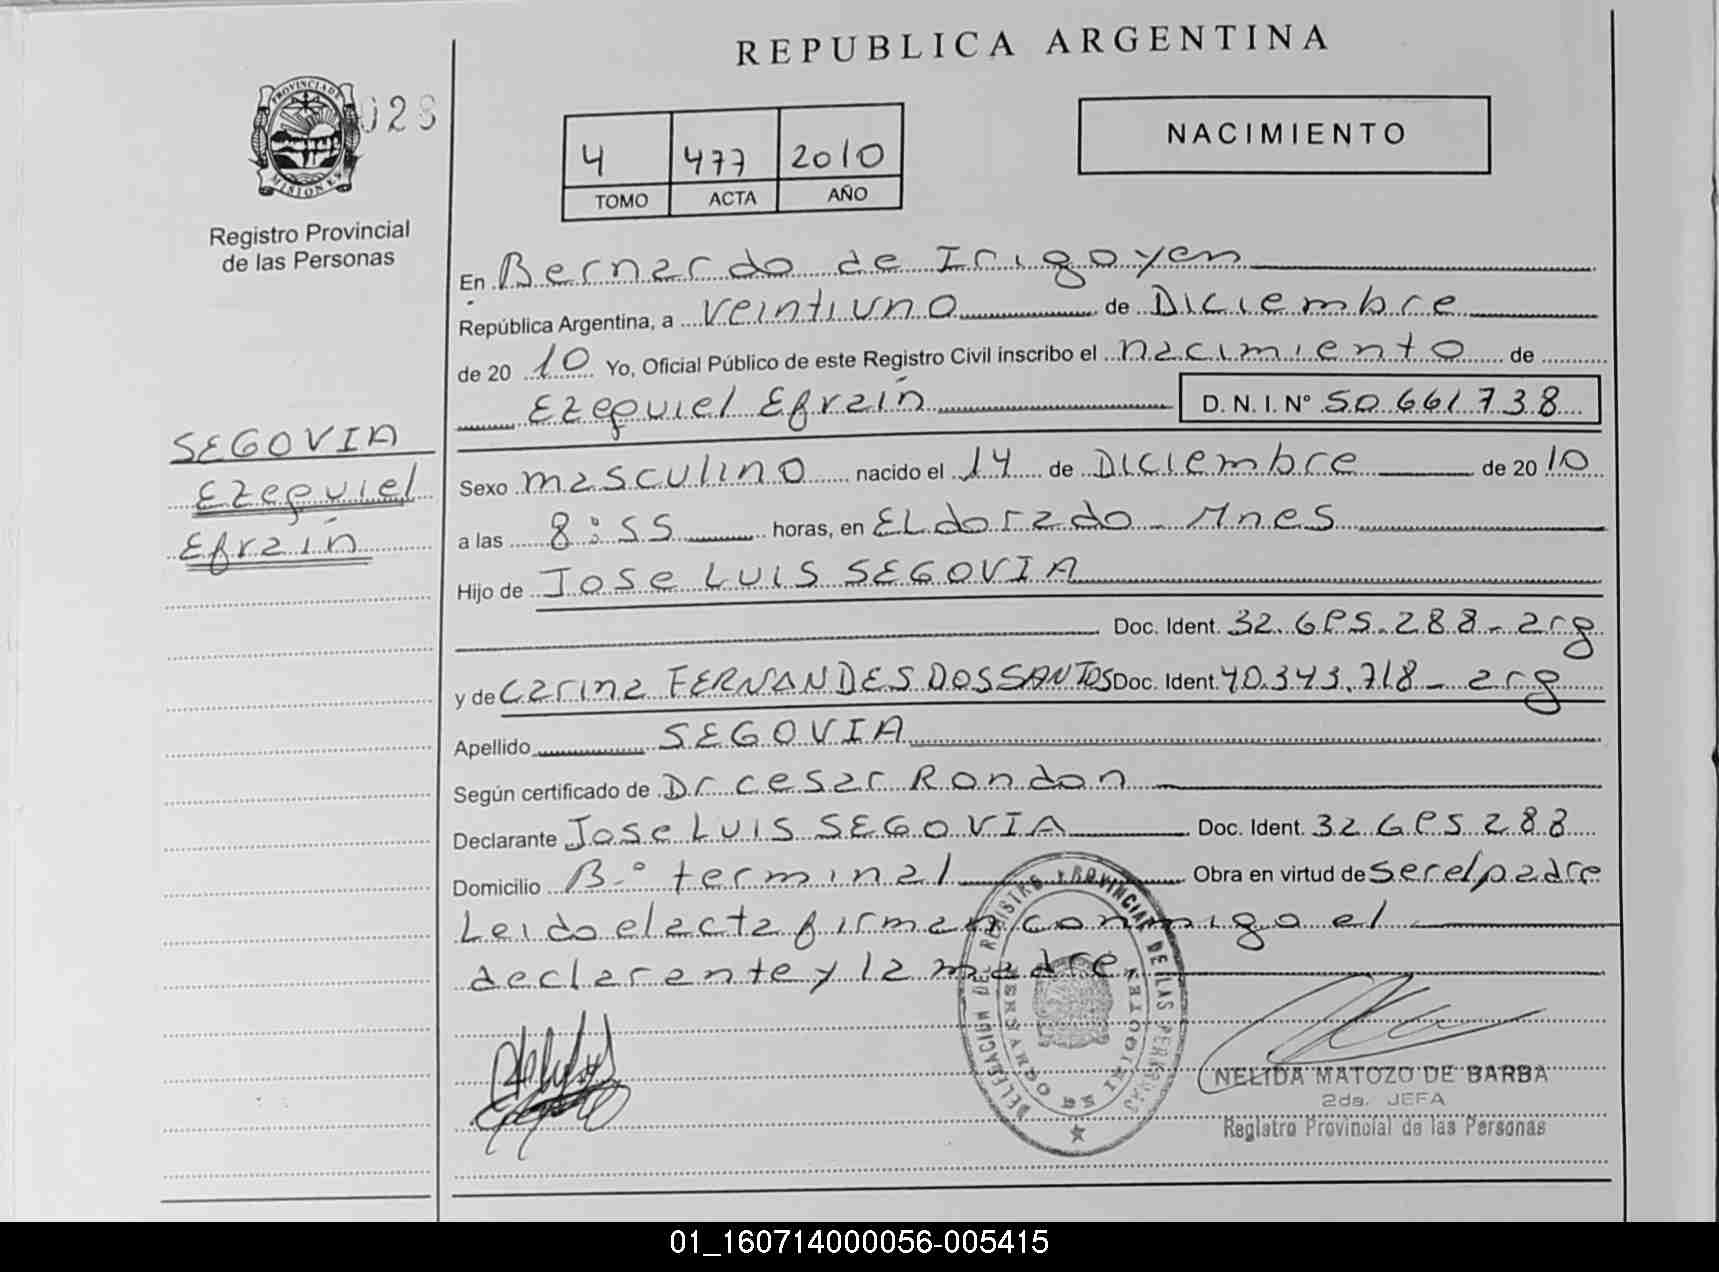 REPUBLICA ARGENTINA
PROVINCIA DE MISIONES
028
Registro Provincial
de las Personas
4 477 2010
TOMO ACTA AÑO
NACIMIENTO
En Bernardo de Irigoyen
República Argentina, a veintiuno de Diciembre
de 2010 Yo, Oficial Público de este Registro Civil inscribo el nacimiento de
Ezequiel Efraín D. N. I. Nº 50.661.738
SEGOVIA
Ezequiel
Efraín
Sexo masculino nacido el 14 de Diciembre de 2010
a las 8:55 horas, en ELdorado - Mnes
Hijo de Jose LUIS SEGOVIA
Doc. Ident. 288 - arg
y de Carina FERNANDES DOS SANTOS Doc. Ident. 40.343.718 - arg
Apellido SEGOVIA
Según certificado de Dr Cesar Rondon
Declarante Jose LUIS SEGOVIA Doc. Ident. 288
Domicilio B.º terminal Obra en virtud de ser el padre
Leido el acta firman conmigo el
declarante y la madre.
DELEGACION DE REGISTRO PROVINCIAL DE LAS PERSONAS
BERNARDO DE IRIGOYEN
NELIDA MATOZO DE BARBA
2da. JEFA
Registro Provincial de las Personas
01_160714000056-005415